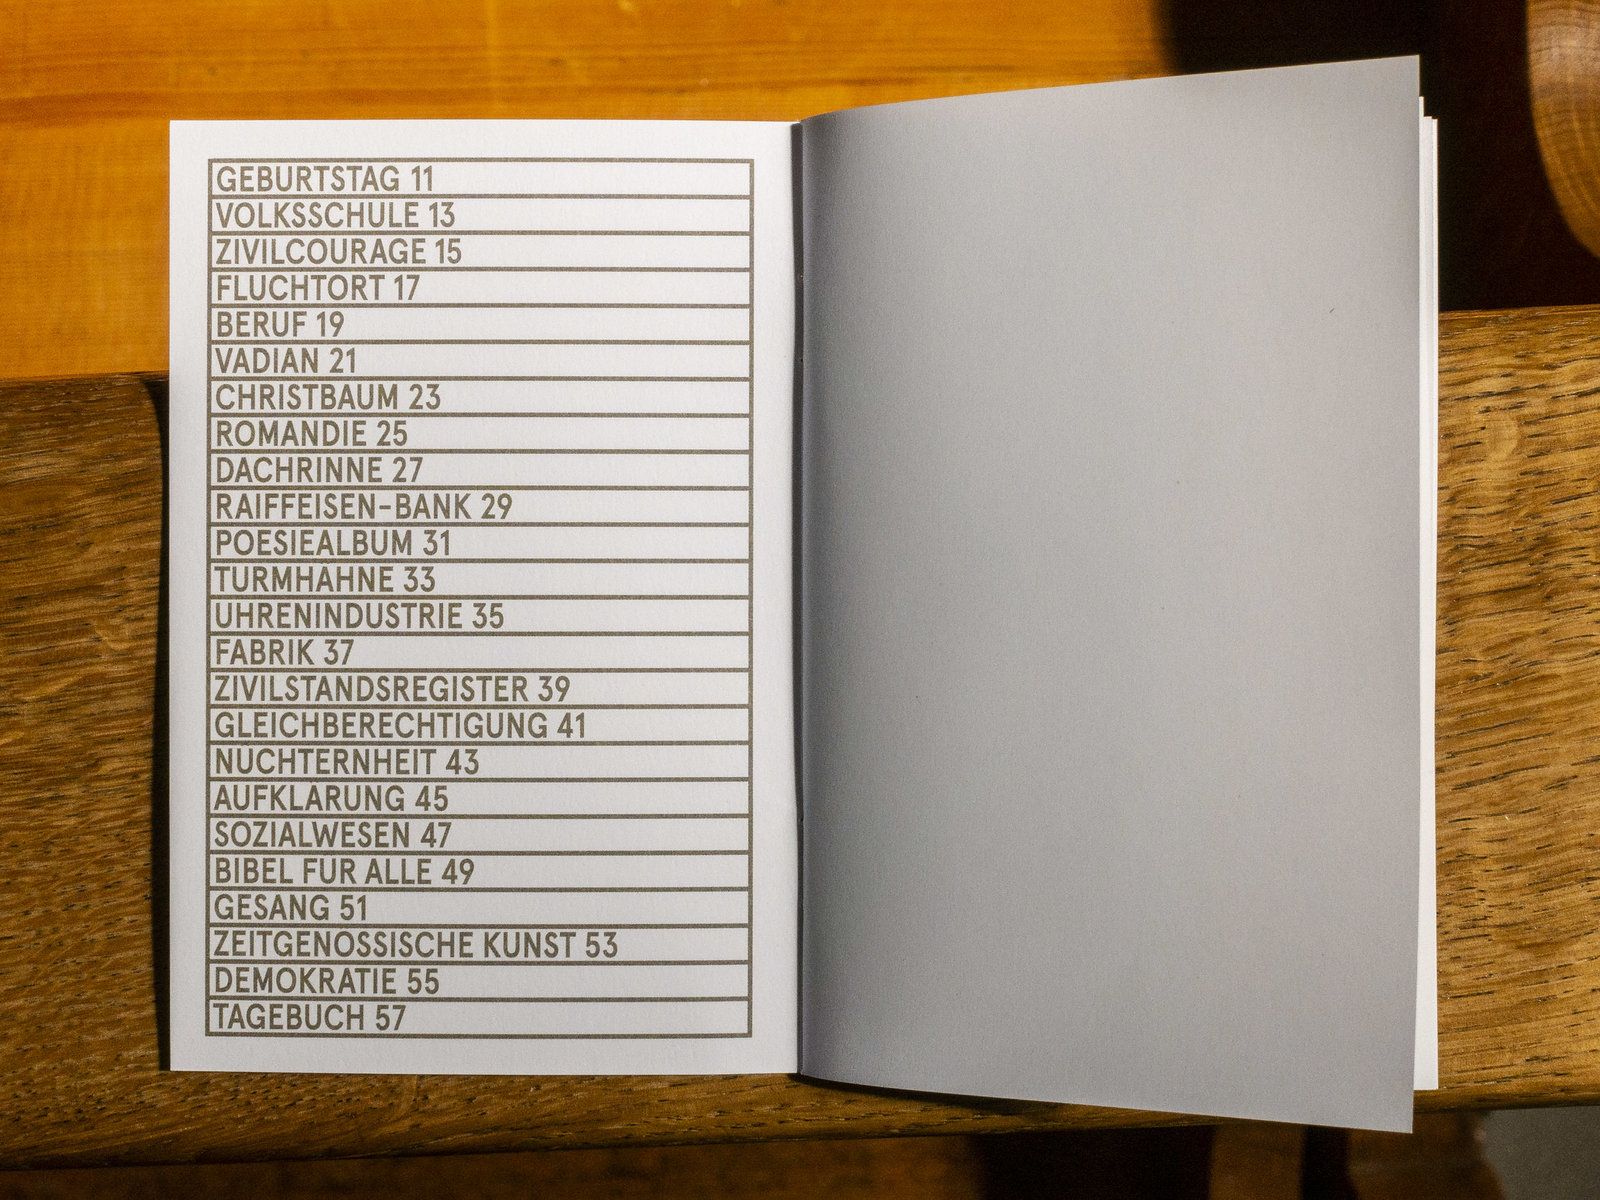 GEBURTSTAG 11
VOLKSSCHULE 13
ZIVILCOURAGE 15
FLUCHTORT 17
BERUF 19
VADIAN 21
CHRISTBAUM 23
ROMANDIE 25
DACHRINNE 27
RAIFFEISEN-BANK 29
POESIEALBUM 31
TURMHAHNE 33
UHRENINDUSTRIE 35
FABRIK 37
ZIVILSTANDSREGISTER 39
GLEICHBERECHTIGUNG 41
NUCHTERNHEIT 43
AUFKLARUNG 45
SOZIALWESEN 47
BIBEL FUR ALLE 49
GESANG 51
ZEITGENOSSISCHE KUNST 53
DEMOKRATIE 55
TAGEBUCH 57